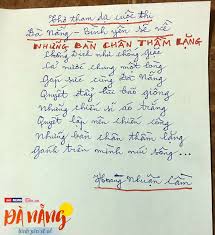 Thơ tham dự cuộc thi
Đà Nẵng - Bình yên sẽ về
NHỮNG BÀN CHÂN THẦM LẶNG
Chống dịch như chống giặc
Cả nước chung một lòng
Góp sức cùng Đà Nẵng
Quyết đẩy lùi bão giông
Những chiến sĩ áo trắng
Quyết lập nên chiến công
Những bàn chân thầm lặng
Gánh trên mình núi sông...
Hoàng Nhuận Cầm
ĐÀ NẴNG
bình yên sẽ về